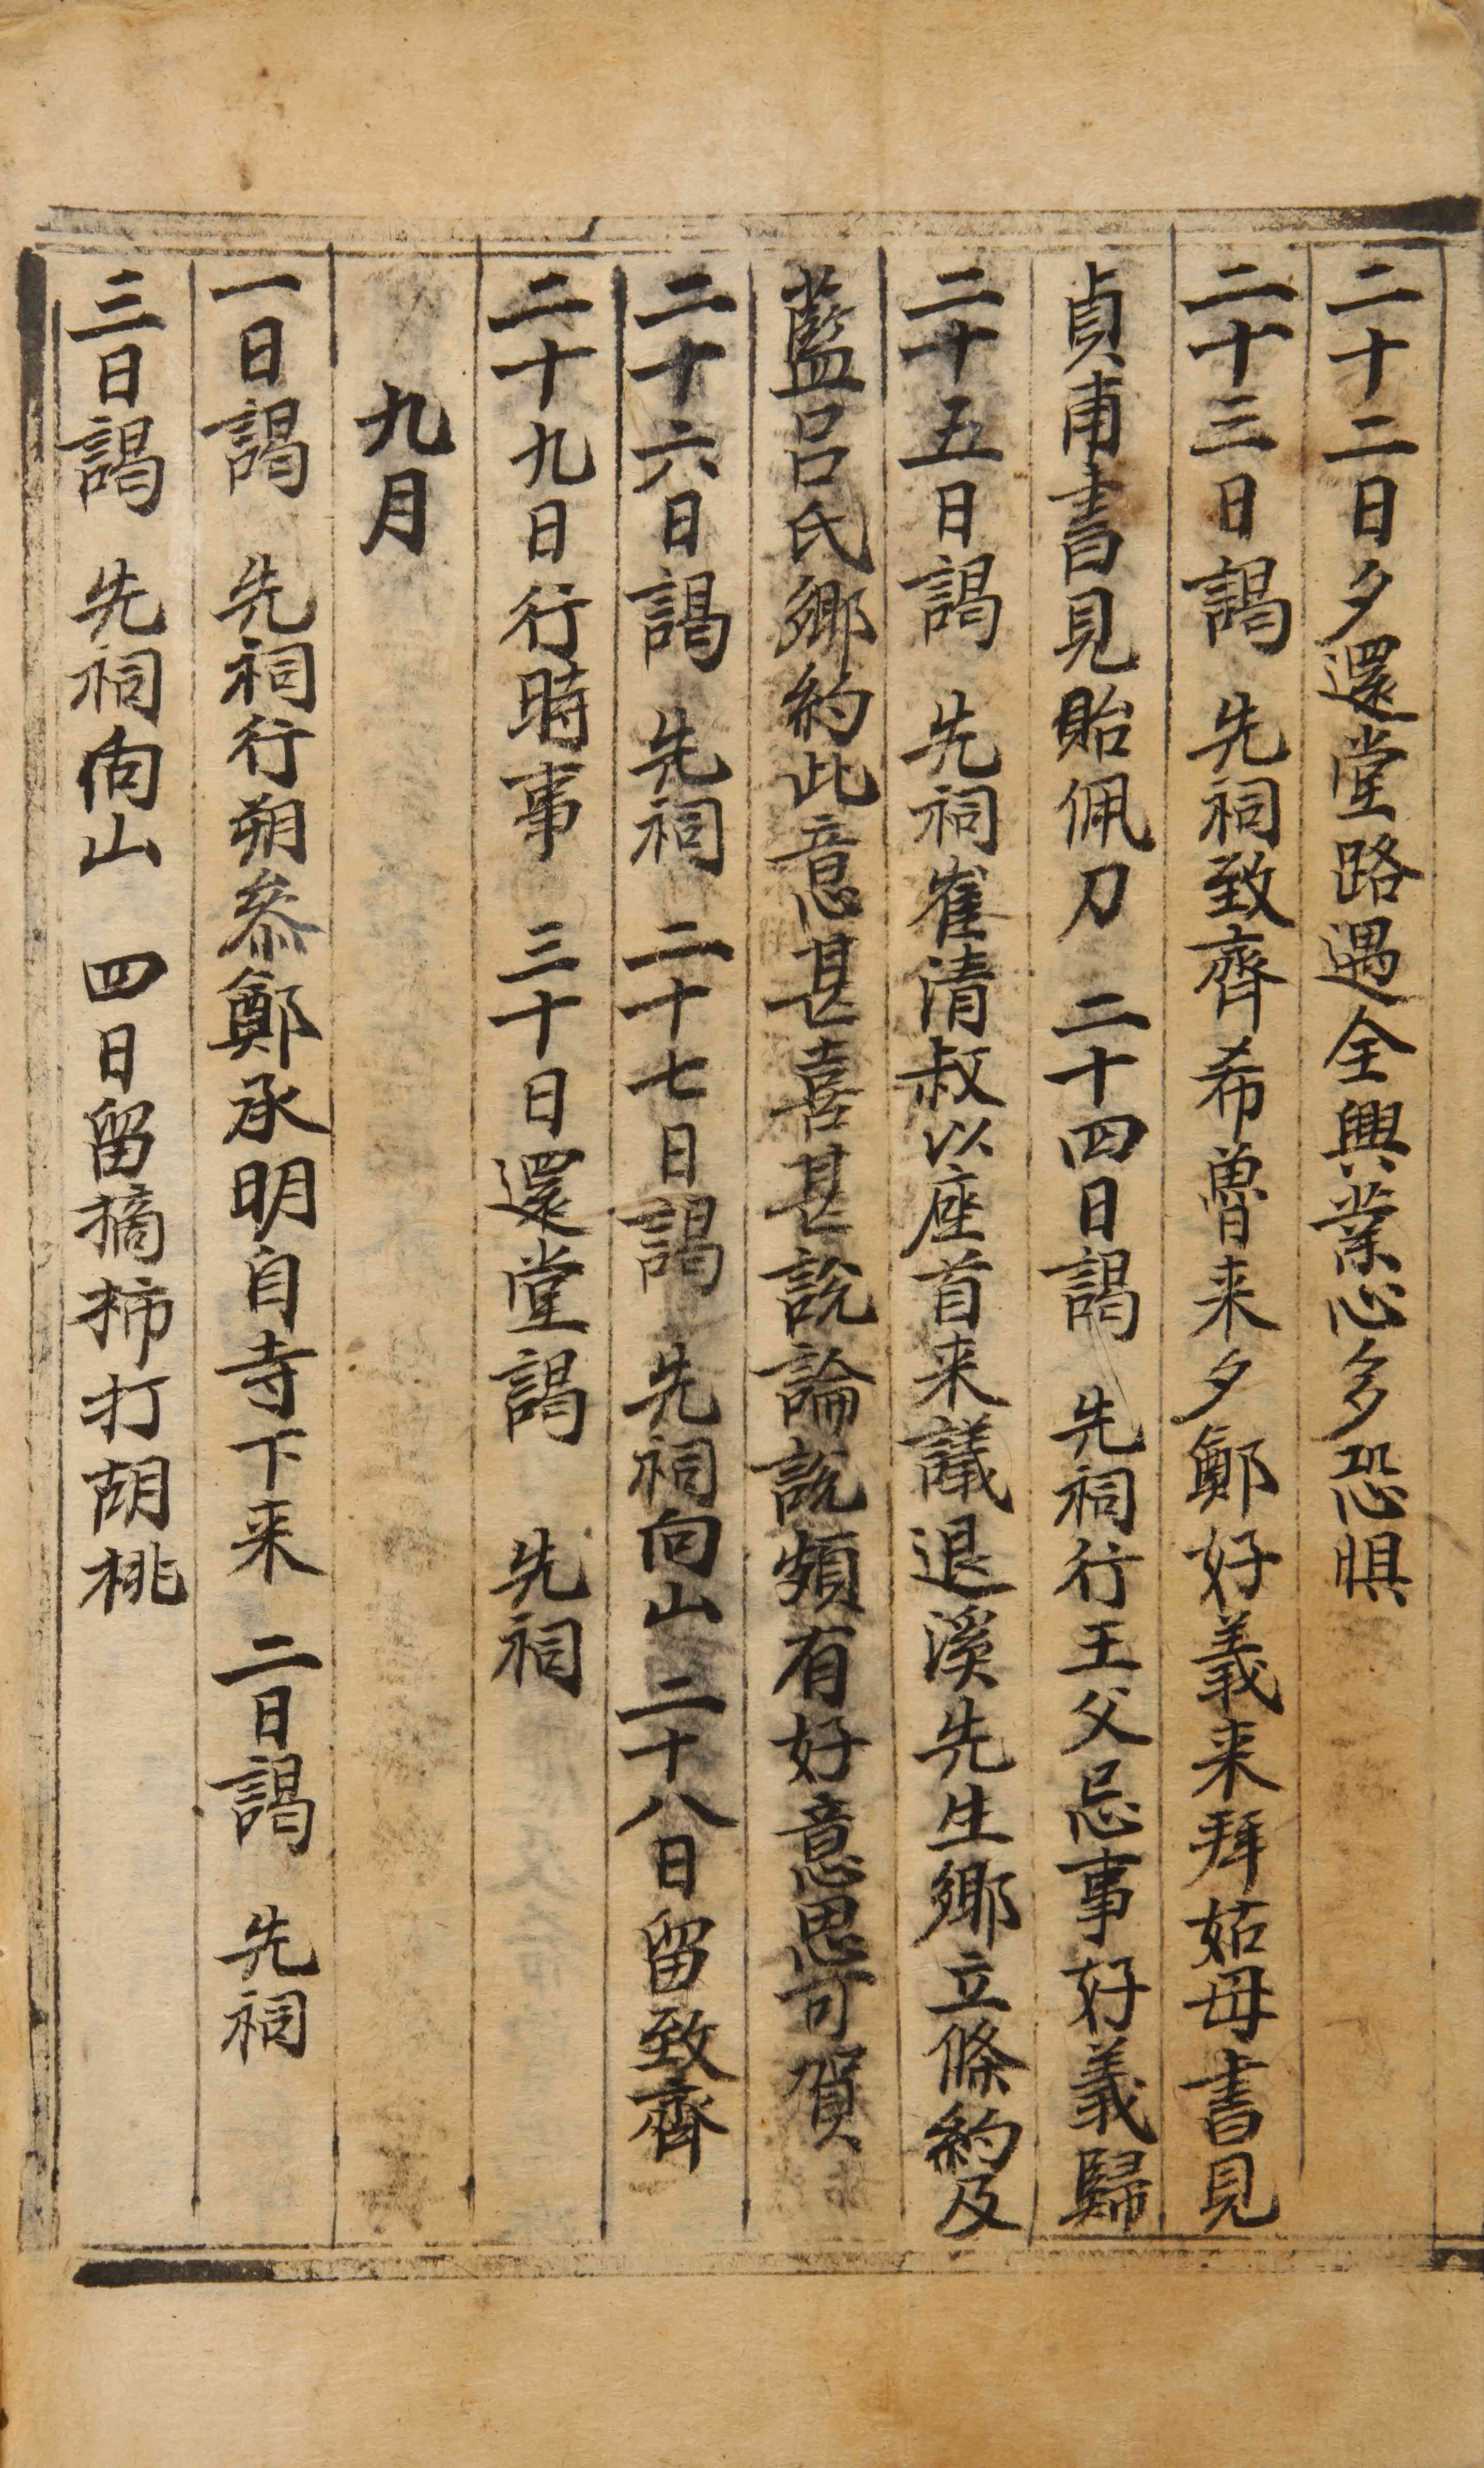 二十二日夕還堂路遇全興業心多恐惧
二十三日謁 先祠致齊希魯来夕鄭好義来拜姑母書見
貞甫書見貽佩刀 二十四日謁 先祠行王父忌事好義歸
二十五日謁 先祠崔清叔以座首来議退溪先生鄉立條約及
藍呂氏鄉約此意甚喜甚說論說頗有好意思可賀
二十六日謁 先祠 二十七日謁 先祠向山 二十八日留致齊
二十九日行時事 三十日還堂謁 先祠
九月
一日謁 先祠行朔叅鄭承明自寺下来 二日謁 先祠
三日謁 先祠向山 四日留摘柿打胡桃